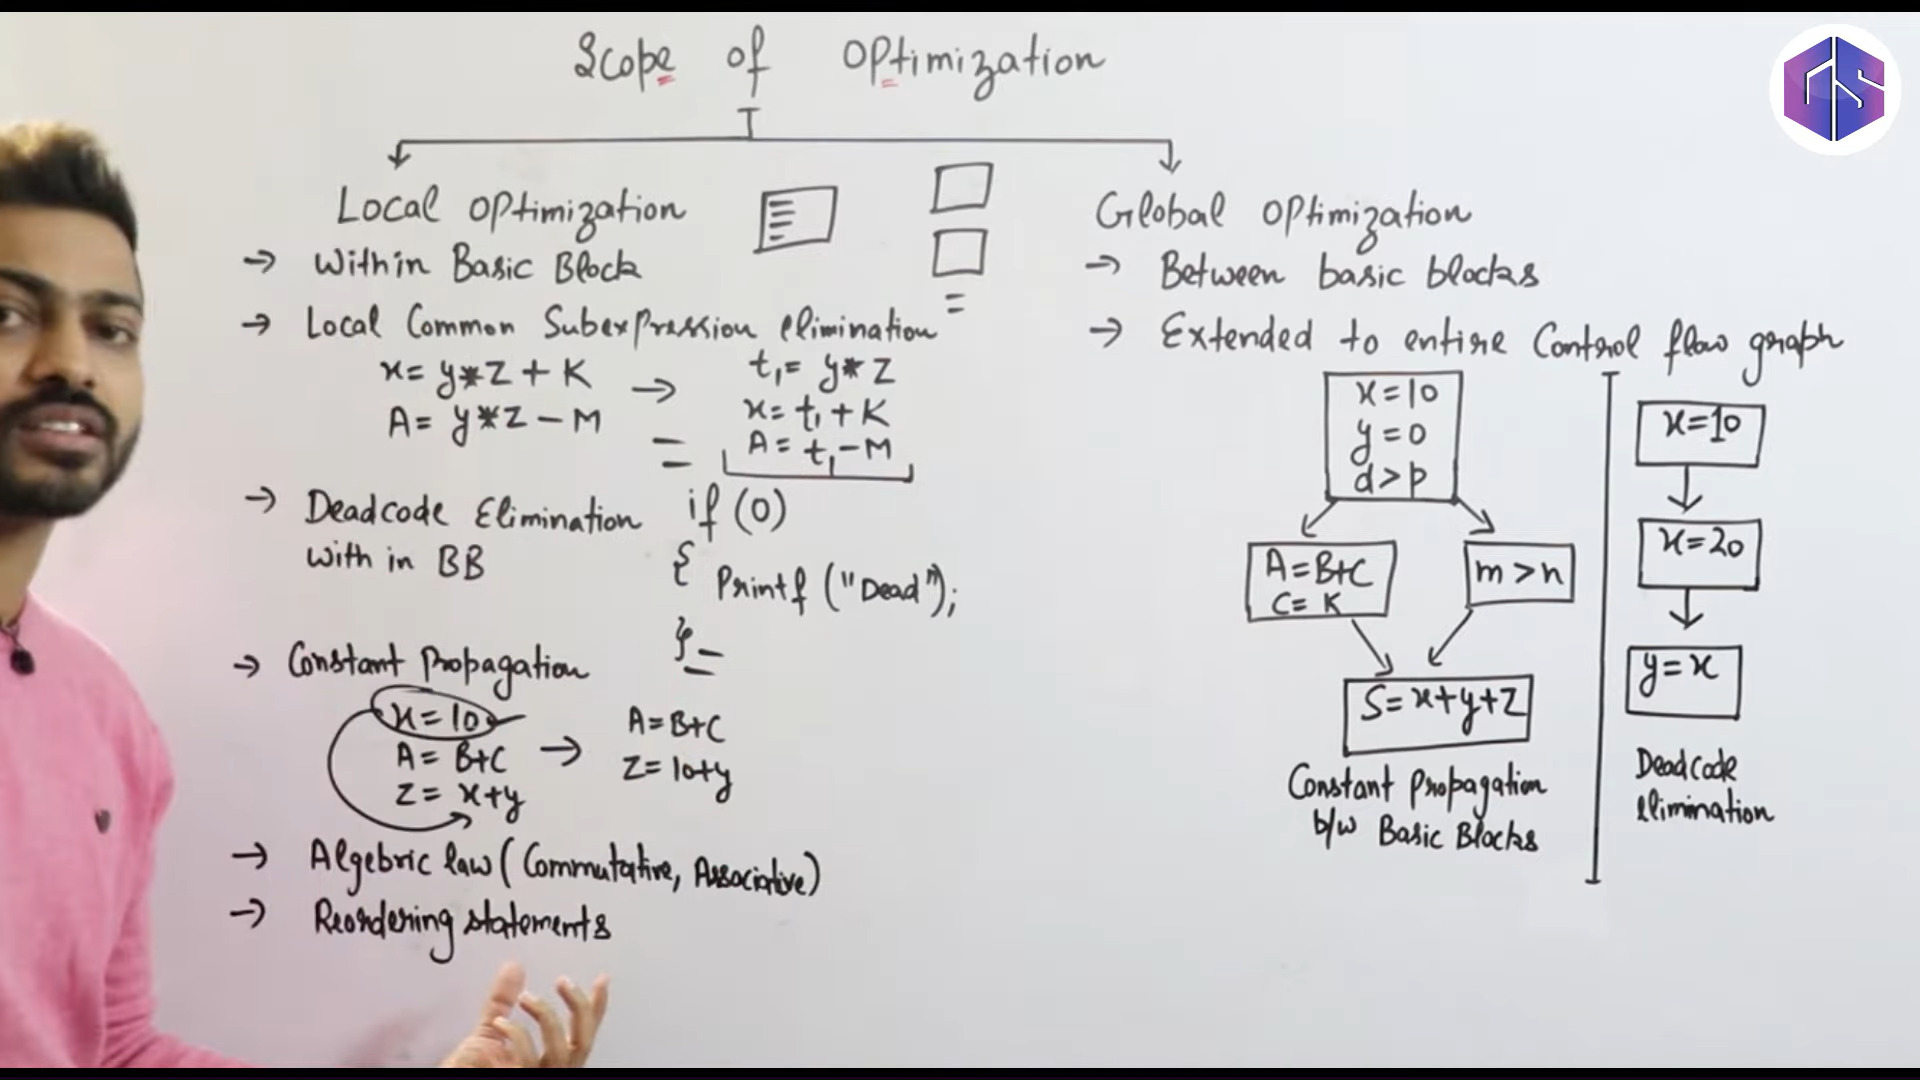 Scope of Optimization
Local Optimization
→ Within Basic Block
→ Local Common Subexpression elimination
x= y*z + K → t₁= y*z
A= y*z - M x= t₁+K
A= t₁-M
→ Deadcode Elimination
with in BB
if (0)
{ Printf ("Dead");
}
→ Constant Propagation
x=10
A= B+C → A=B+C
Z= x+y Z=10+y
→ Algebric law (Commutative, Associative)
→ Reordering statements
Global Optimization
→ Between basic blocks
→ Extended to entire Control flow graph
x=10
y=0
d>p
A=B+C
C= K
m>n
S=x+y+Z
Constant Propagation
b/w Basic Blocks
x=10
x=20
y=x
Deadcode
elimination